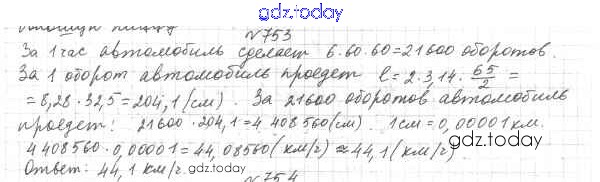 gdz.today
№753
За 1 час автомобиль сделает 6·60·60=21600 оборотов.
За 1 оборот автомобиль проедет l=2·3,14·65/2=
=6,28·32,5=204,1(см). За 21600 оборотов автомобиль
проедет: 21600·204,1=4 408560(см). 1см=0,00001км.
4408560·0,00001=44,08560(км/г)≈44,1(км/г)
gdz.today
Ответ: 44,1 км/г.
gdz.today
№754